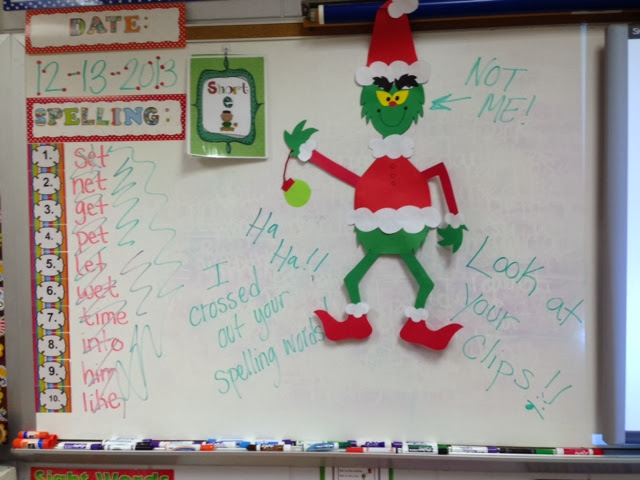 DATE:
12-13-2013
SPELLING:
Short
e
1. set
2. net
3. get
4. pet
5. let
6. wet
7. time
8. into
9. him
10. like
NOT
ME!
Ha
Ha!!
I
crossed
out your
spelling words!
Look at
your
clips!!
Sight Words